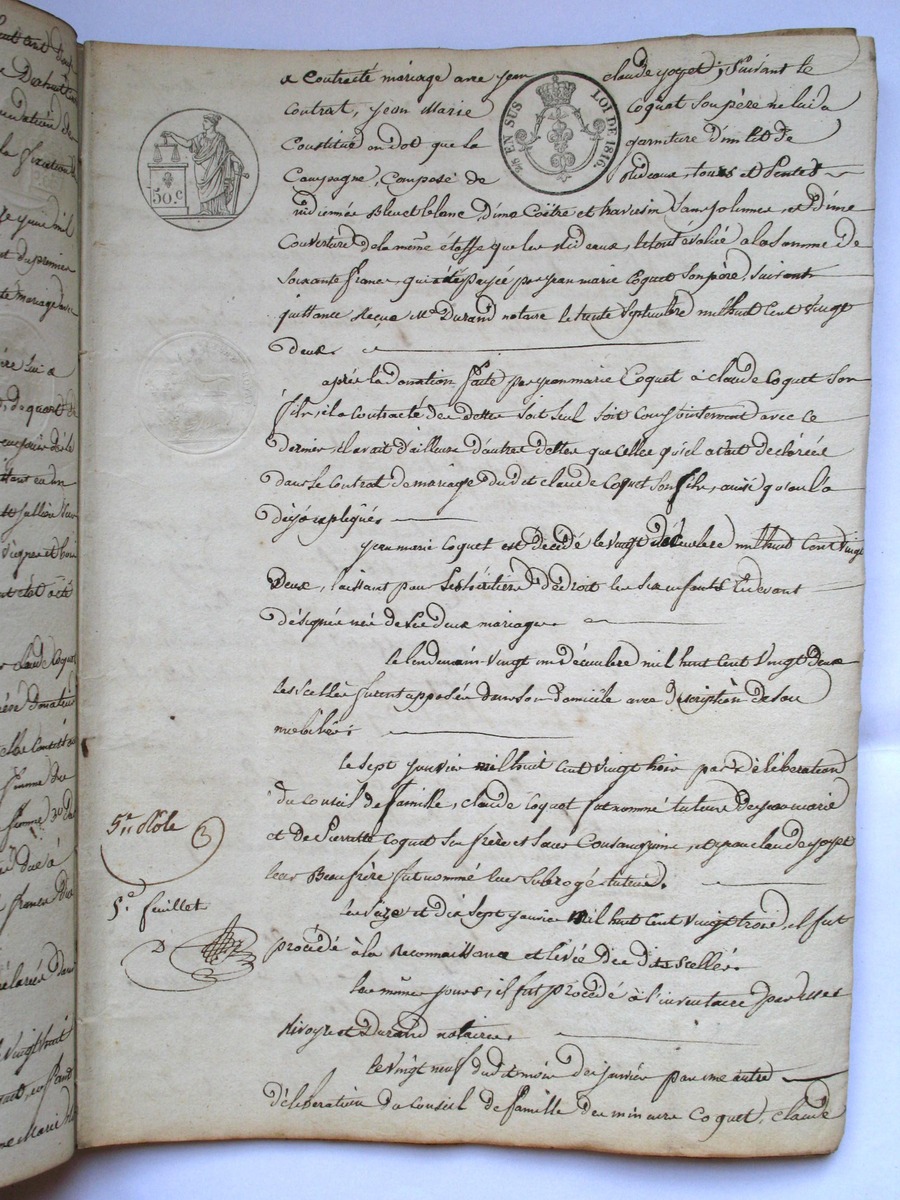 a contracté mariage avec jean claude yoyet; Suivant le
contrat, jean Marie Coquet Son père ne lui a
Constitué en dot que la garniture d'un lit de
Campagne, Composé de Rideaux, tours et Pentes
indienne Bleu et blanc, d'une Coëtre et traversin Sans plumes, et d'une
Couverture de la même étoffe que les rideaux, le tout évalué a la Somme de
Soixante francs qui a été payée par jean marie Coquet Son père, Suivant
quittance Reçue Me. Durand notaire le trente Septembre mil huit Cent vingt
deux.
après la donation faite par jean marie Coquet à claude Coquet Son
fils, il a contracté des dettes soit Seul soit Conjointement avec ce
dernier, il avait d'ailleurs d'autres dettes que celles qu'il avait déclarées
dans le Contrat de mariage du dit claude Coquet Son fils, ainsi qu'on l'a
déjà expliqué.
jean marie Coquet est décédé le vingt décembre mil huit Cent vingt
deux, laissant pour Ses héritiers de droit les Six enfants Cidevant
désignés nés de Ses deux mariages.
le lendemain vingt un Décembre mil huit Cent Vingt deux
les Scellés furent apposés dans Son domicile avec description de Son
mobilier.
le sept janvier mil huit cent vingt trois par délibération
du Conseil de famille, claude Coquet fut nommé tuteur de jean marie
et de Pierrette Coquet Ses frère et Sœur Consanguins, et jean claude yoyet
leur Beau frère fut nommé leur Subrogé tuteur.
les Seize et dix Sept janvier Mil huit cent vingt trois, il fut
procédé à la Reconnaissance et levée des dits Scellés.
les mêmes jours, il fut procédé à l'inventaire par Mes
et Durand notaires.
le vingt neuf du dit mois de janvier par une autre
délibération du Conseil de famille des mineurs Coquet, claude
5e. Rôle
5e. feuillet
50 c
2/8 EN SUS LOI DE 1816.